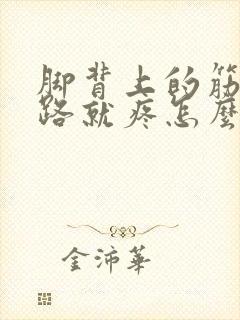 脚背上的筋
路就疼怎麼
金沛華